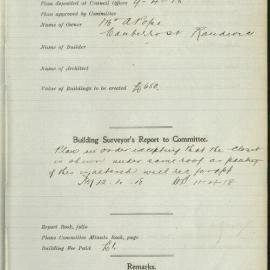 Plan deposited at Council Offices 9-4-18
Plan approved by Committee
Name of Owner Mr A Pope
Canberra St Randwick
Name of Builder
Name of Architect
Value of Buildings to be erected £650
Building Surveyor's Report to Committee.
Plan in order excepting that the closet
is shown under same roof as
of this will
12.4.18 10-4-18
Report Book, folio
Plans Committee Minute Book, page
Building Fee Paid £1.
Remarks.